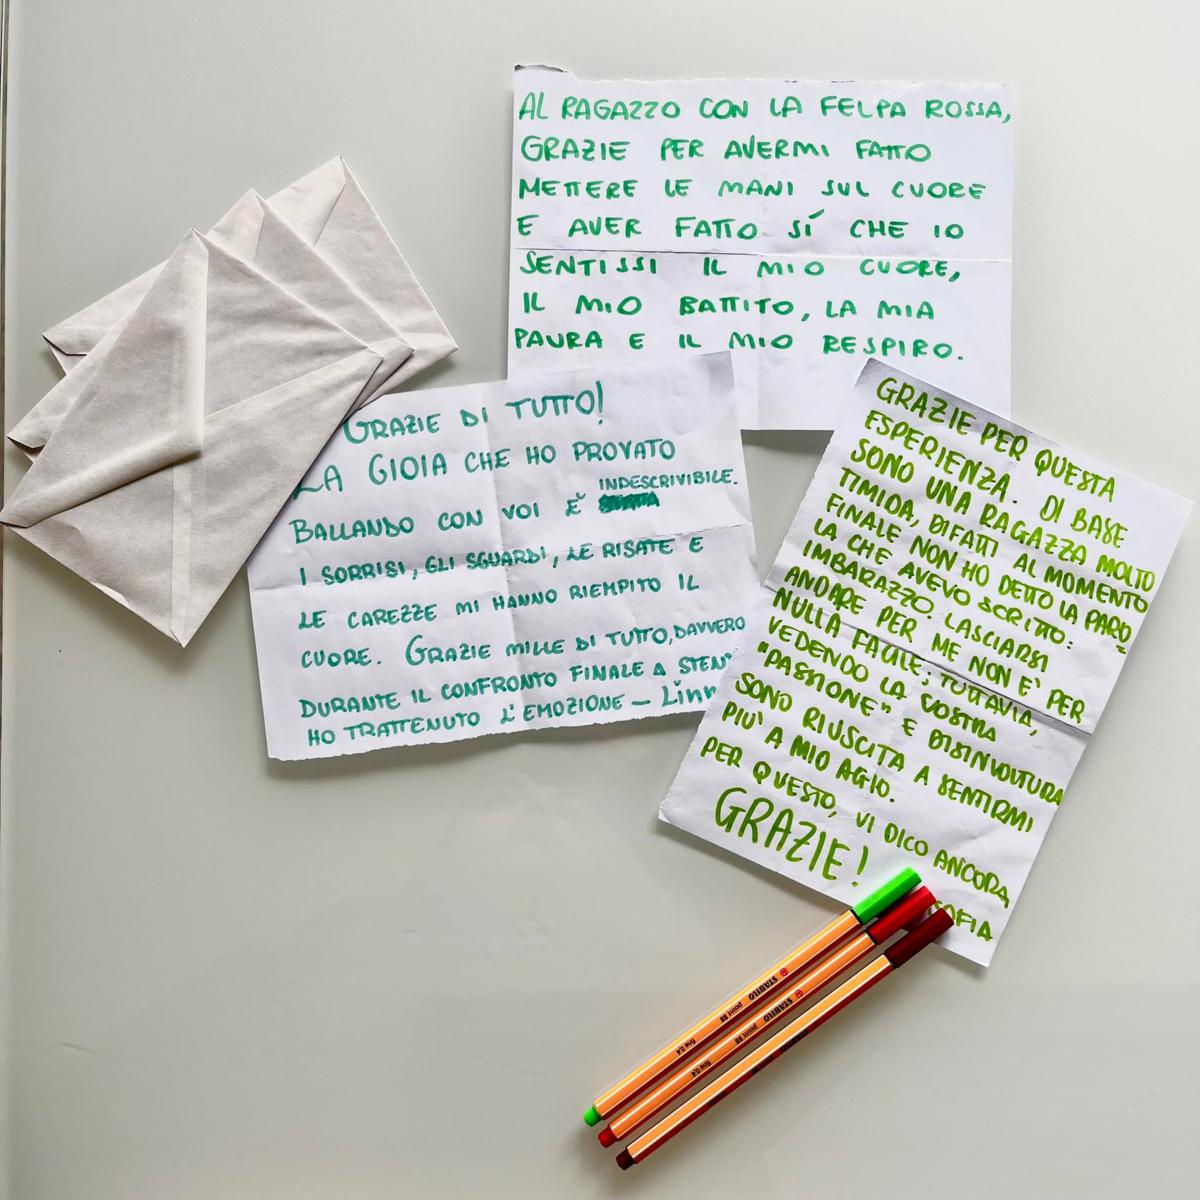 AL RAGAZZO CON LA FELPA ROSSA,
GRAZIE PER AVERMI FATTO
METTERE LE MANI SUL CUORE
E AVER FATTO SÍ CHE IO
SENTISSI IL MIO CUORE,
IL MIO BATTITO, LA MIA
PAURA E IL MIO RESPIRO.
GRAZIE DI TUTTO!
LA GIOIA CHE HO PROVATO
BALLANDO CON VOI È INDESCRIVIBILE.
I SORRISI, GLI SGUARDI, LE RISATE E
LE CAREZZE MI HANNO RIEMPITO IL
CUORE. GRAZIE MILLE DI TUTTO, DAVVERO
DURANTE IL CONFRONTO FINALE A STENTO
HO TRATTENUTO L'EMOZIONE - Linn
GRAZIE PER QUESTA
ESPERIENZA. DI BASE
SONO UNA RAGAZZA MOLTO
TIMIDA, DIFATTI AL MOMENTO
FINALE NON HO DETTO LA PARO
LA CHE AVEVO SCRITTO:
IMBARAZZO. LASCIARSI
ANDARE PER ME NON E' PER
NULLA FACILE; TUTTAVIA,
VEDENDO LA VOSTRA
"PASSIONE" E DISINVOLTURA
SONO RIUSCITA A SENTIRMI
PIU' A MIO AGIO.
PER QUESTO, VI DICO ANCORA
GRAZIE!
SOFIA
STABILO point 88 fine 0,4
STABILO point 88 fine 0,4